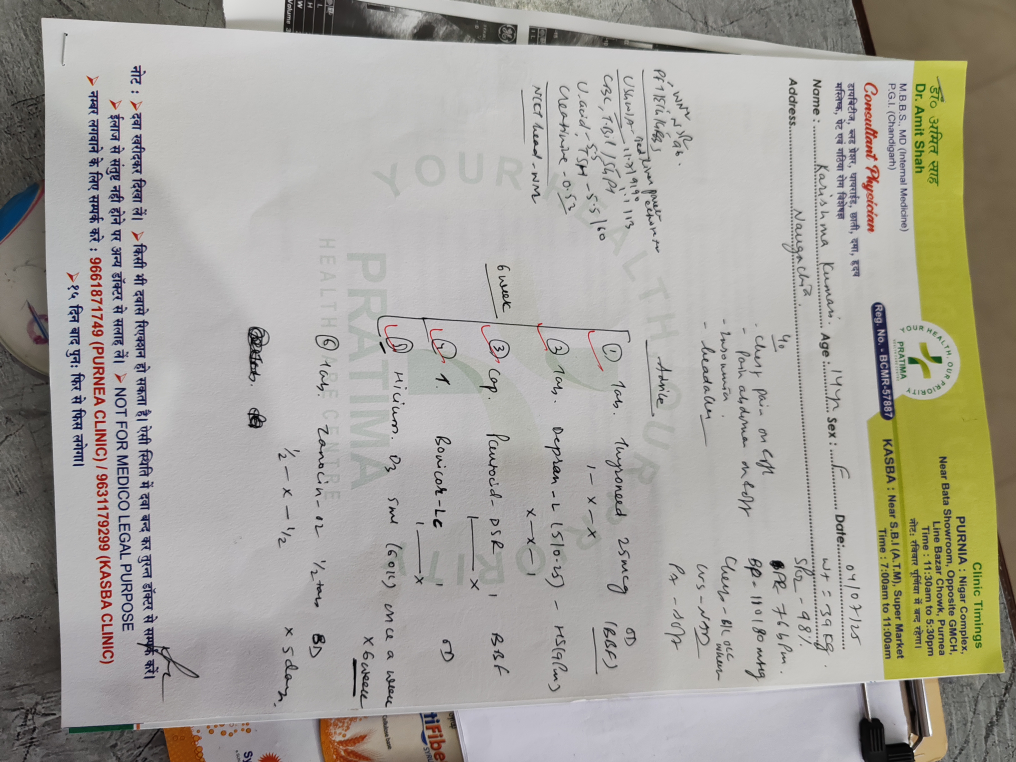 डॉ० अमित साह
Dr. Amit Shah
M.B.B.S., MD (Internal Medicine)
P.G.I. (Chandigarh)
Consultant Physician
डायबिटीज, ब्लड प्रेशर, थायराईड, छाती, दमा, हृदय
मस्तिष्क, पेट एवं गठिया रोग विशेषज्ञ
YOUR HEALTH, OUR PRIORITY
PRATIMA
Reg. No. - BCMR-57887
Clinic Timings
PURNIA : Nigar Complex,
Near Bata Showroom, Opposite GMCH,
Line Bazar Chowk, Purnea
Time : 11:30am to 5:30pm
नोट: रविवार पूर्णिया में बन्द रहेगा।
KASBA : Near S.B.I (A.T.M), Super Market
Time : 7:00am to 11:00am
Name : Karishma Kumari Age : 14yr Sex : F Date: 04/07/25
Address Naugachia
Wt = 39 kg
SpO2 - 98%
PR 76 bpm
BP 110/80 mmHg
Chest - B/L occ wheeze
CVS - NAD
PA - Soft
- chest pain on & off
- Pain abdomen on & off
- Insomnia
- headache
CBC,
U. acid -
TSH - 5.5
Creatinine - 0.53
NCCT head - WNL
Advice
6 week
① Tab. Thyroneed 25mcg OD
1 - x - x (BBF)
② Tab. Depran-L (5/0.25) - HS (9 Pm)
x - x - 1
③ Cap. Pantocid-DSR 1 BBF
1 — x
④ T. Bonicor-LC OD
1 — x
⑤ Hicium D3 5ml (60K) once a week
x 6 week
⑥ Tab. Zanocin-OZ 1/2 tab BD
1/2 - x - 1/2 x 5 days
YOUR HEALTH OUR PRIORITY
PRATIMA
HEALTH CARE CENTRE
नोट : ➤ दवा खरीदकर दिखा लें। ➤ किसी भी दवासे रिएक्शन हो सकता है। ऐसी स्थिति में दवा बन्द कर तुरन्त डॉक्टर से सम्पर्क करें।
➤ ईलाज से संतुष्ट नही होने पर अन्य डॉक्टर से सलाह लें। ➤ NOT FOR MEDICO LEGAL PURPOSE
➤ नम्बर लगवाने के लिए सम्पर्क करे : 9661871749 (PURNEA CLINIC) / 9631179299 (KASBA CLINIC)
➤ १५ दिन बाद पुनः फिर से फिस लगेगा।
tiFibe